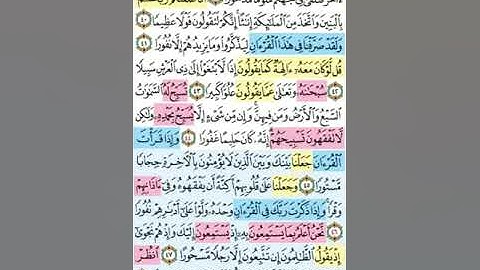 بِٱلْبَنِينَ وَٱتَّخَذَ مِنَ ٱلْمَلَٰٓئِكَةِ إِنَٰثًا إِنَّكُمْ لَتَقُولُونَ قَوْلًا عَظِيمًا ٤٠
وَلَقَدْ صَرَّفْنَا فِي هَٰذَا ٱلْقُرْءَانِ لِيَذَّكَّرُوا۟ وَمَا يَزِيدُهُمْ إِلَّا نُفُورًا ٤١
قُل لَّوْ كَانَ مَعَهُۥٓ ءَالِهَةٌ كَمَا يَقُولُونَ إِذًا لَّٱبْتَغَوْا۟ إِلَىٰ ذِي ٱلْعَرْشِ سَبِيلًا
٤٢ سُبْحَٰنَهُۥ وَتَعَٰلَىٰ عَمَّا يَقُولُونَ عُلُوًّا كَبِيرًا ٤٣ تُسَبِّحُ لَهُ ٱلسَّمَٰوَٰتُ
ٱلسَّبْعُ وَٱلْأَرْضُ وَمَن فِيهِنَّ وَإِن مِّن شَيْءٍ إِلَّا يُسَبِّحُ بِحَمْدِهِۦ وَلَٰكِن
لَّا تَفْقَهُونَ تَسْبِيحَهُمْ إِنَّهُۥ كَانَ حَلِيمًا غَفُورًا ٤٤ وَإِذَا قَرَأْتَ
ٱلْقُرْءَانَ جَعَلْنَا بَيْنَكَ وَبَيْنَ ٱلَّذِينَ لَا يُؤْمِنُونَ بِٱلْءَاخِرَةِ حِجَابًا
مَّسْتُورًا ٤٥ وَجَعَلْنَا عَلَىٰ قُلُوبِهِمْ أَكِنَّةً أَن يَفْقَهُوهُ وَفِيٓ ءَاذَانِهِمْ
وَقْرًا وَإِذَا ذَكَرْتَ رَبَّكَ فِي ٱلْقُرْءَانِ وَحْدَهُۥ وَلَّوْا۟ عَلَىٰٓ أَدْبَٰرِهِمْ نُفُورًا
٤٦ نَّحْنُ أَعْلَمُ بِمَا يَسْتَمِعُونَ بِهِۦٓ إِذْ يَسْتَمِعُونَ إِلَيْكَ وَإِذْ هُمْ نَجْوَىٰٓ
إِذْ يَقُولُ ٱلظَّٰلِمُونَ إِن تَتَّبِعُونَ إِلَّا رَجُلًا مَّسْحُورًا ٤٧ ٱنظُرْ